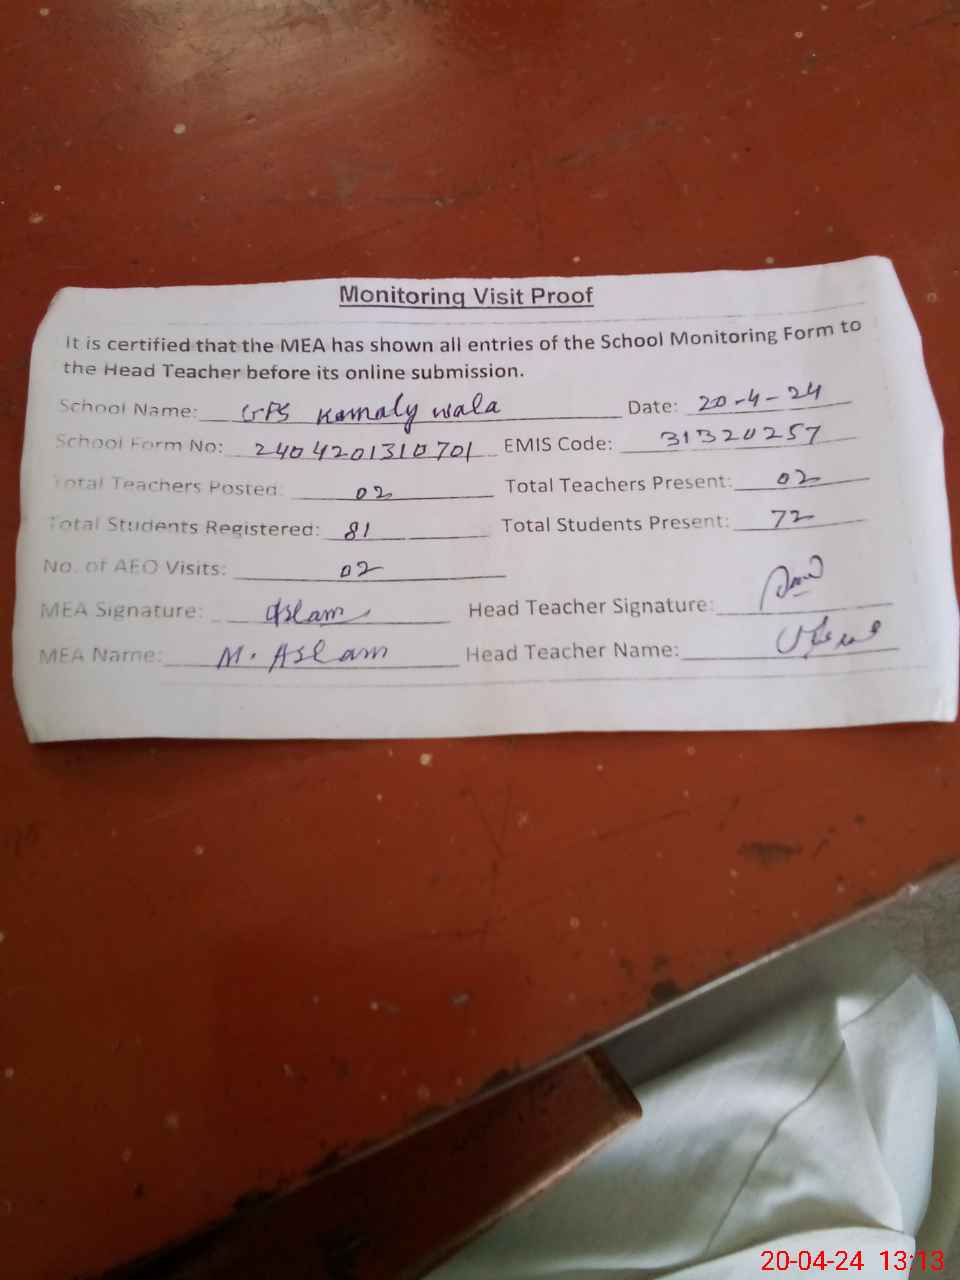 Monitoring Visit Proof
It is certified that the MEA has shown all entries of the School Monitoring Form to
the Head Teacher before its online submission.
School Name: GPS Kamaly wala Date: 20-4-24
School Form No: 2404201310701 EMIS Code: 31320257
Total Teachers Posted: 02 Total Teachers Present: 02
Total Students Registered: 81 Total Students Present: 72
No. of AEO Visits: 02
MEA Signature: Aslam Head Teacher Signature:
MEA Name: M. Aslam Head Teacher Name:
20-04-24 13:13